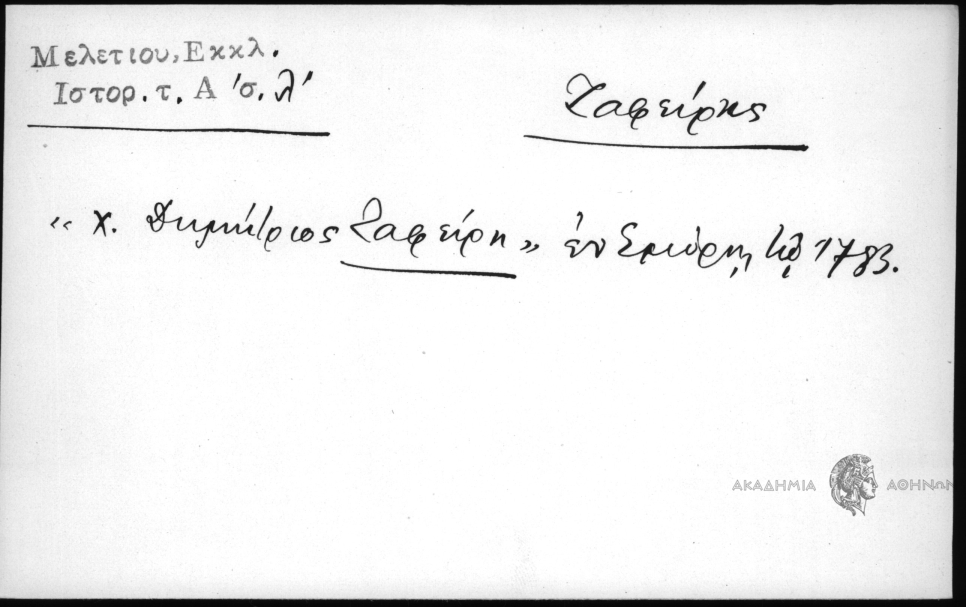 Μελετιου, Εκκλ.
Ιστορ. τ. Α 'σ. λ'
Ζαφείρης
“ Χ. Δημήτριος Ζαφείρη „ ἐν Σμύρνῃ τῷ 1783.
ΑΚΑΔΗΜΙΑ ΑΘΗΝΩΝ